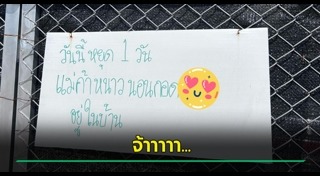 วันนี้หยุด 1 วัน
แม่ค้าหนาวนอนกอด
อยู่ในบ้าน
จ้าาาาา...